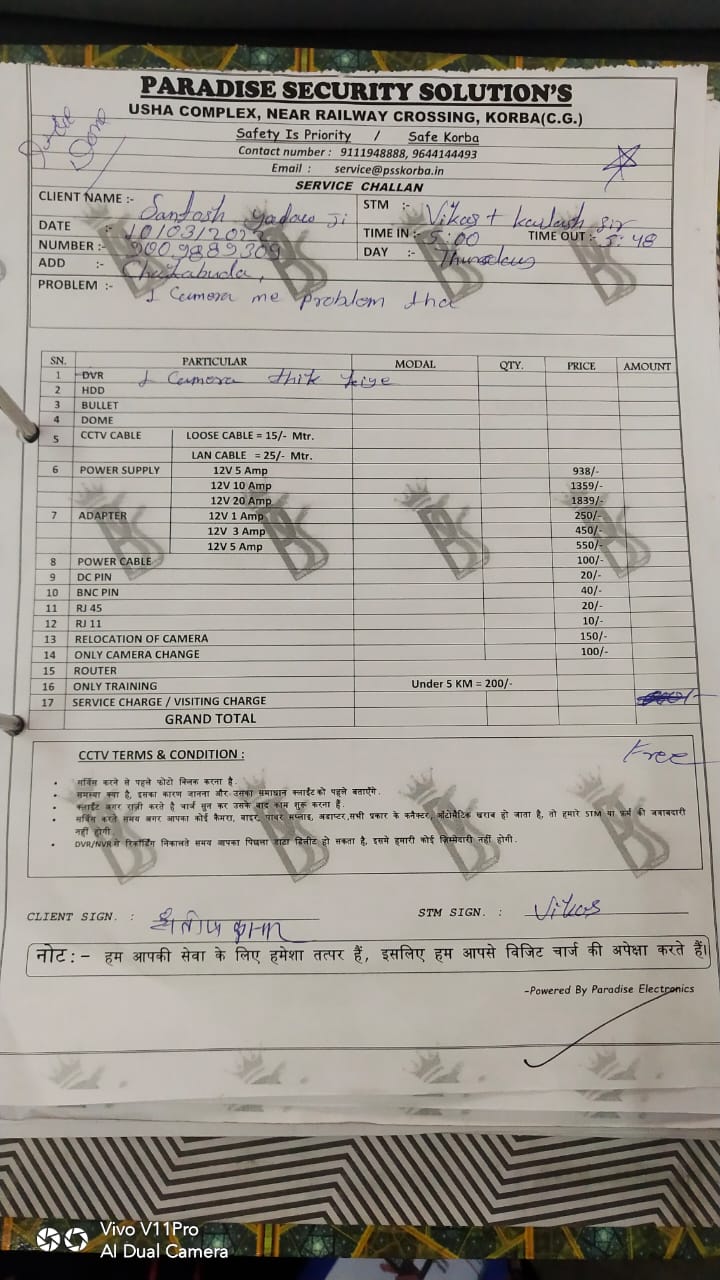 PARADISE SECURITY SOLUTION'S
USHA COMPLEX, NEAR RAILWAY CROSSING, KORBA(C.G.)
Safety Is Priority / Safe Korba
Contact number : 9111948888, 9644144493
Email : service@psskorba.in
SERVICE CHALLAN
Done
CLIENT NAME :- Santosh yadaw ji
STM :- Vikas + kailash sir
DATE : 10/03/2022
TIME IN :- 5:00 TIME OUT :- 5:48
NUMBER :- 9009889309
DAY :- Thursday
ADD :-
PROBLEM :- 1 Camera me problem tha
SN. PARTICULAR MODAL QTY. PRICE AMOUNT
1 DVR 1 Camera thik kiye
2 HDD
3 BULLET
4 DOME
5 CCTV CABLE LOOSE CABLE = 15/- Mtr.
LAN CABLE = 25/- Mtr.
6 POWER SUPPLY 12V 5 Amp 938/-
12V 10 Amp 1359/-
12V 20 Amp 1839/-
7 ADAPTER 12V 1 Amp 250/-
12V 3 Amp 450/-
12V 5 Amp 550/-
8 POWER CABLE 100/-
9 DC PIN 20/-
10 BNC PIN 40/-
11 RJ 45 20/-
12 RJ 11 10/-
13 RELOCATION OF CAMERA 150/-
14 ONLY CAMERA CHANGE 100/-
15 ROUTER
16 ONLY TRAINING Under 5 KM = 200/-
17 SERVICE CHARGE / VISITING CHARGE
GRAND TOTAL
Free
CCTV TERMS & CONDITION :
• सर्विस करने से पहले फोटो क्लिक करना है.
• समस्या क्या है, इसका कारण जानना और उसका समाधान क्लाईंट को पहले बताएँगे.
• क्लाईंट अगर राज़ी करते है चार्ज सुन कर उसके बाद काम शुरू करना हैं.
• सर्विस करते समय अगर आपका कोई कैमरा, वाइर, पावर सप्लाइ, अडाप्टर,सभी प्रकार के कनैक्टर, ऑटोमैटिक खराब हो जाता है, तो हमारे STM या फ़र्म की जवाबदारी
नहीं होगी.
• DVR/NVR से रिकॉर्डिंग निकालते समय आपका पिछला डाटा डिलीट हो सकता है, इसमे हमारी कोई ज़िम्मेदारी नहीं होगी.
CLIENT SIGN. :
STM SIGN. : Vikas
नोट:- हम आपकी सेवा के लिए हमेशा तत्पर हैं, इसलिए हम आपसे विजिट चार्ज की अपेक्षा करते हैं।
-Powered By Paradise Electronics
Vivo V11Pro
AI Dual Camera